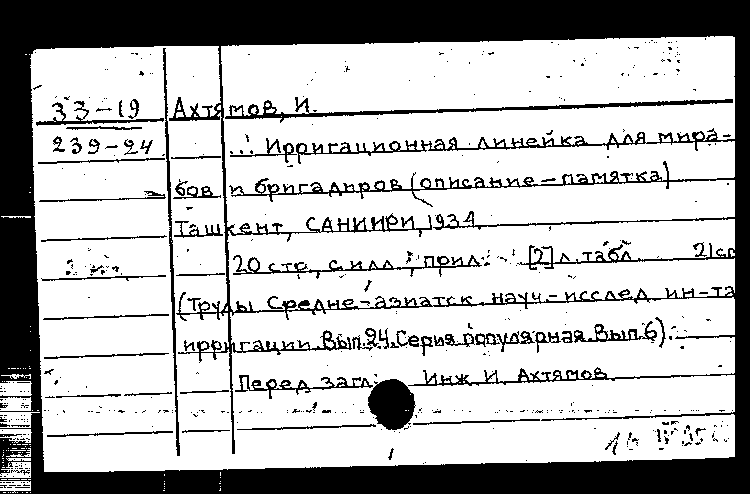 33-19 Ахтямов, И.
239-24 ...Ирригационная линейка для мира-
бов и бригадиров (описание-памятка)
Ташкент, САНИИРИ, 1934.
20 стр., с илл.; прил. [2] л. табл. 21с
(Труды Средне-азиатск. науч.-исслед. ин-та
ирригации Вып. 24. Серия популярная. Вып. 6).
Перед загл.: Инж. И. Ахтямов